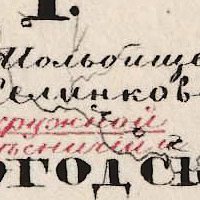 Мольбище
Селинков
кружной
ѣсничій
ОГОДСК